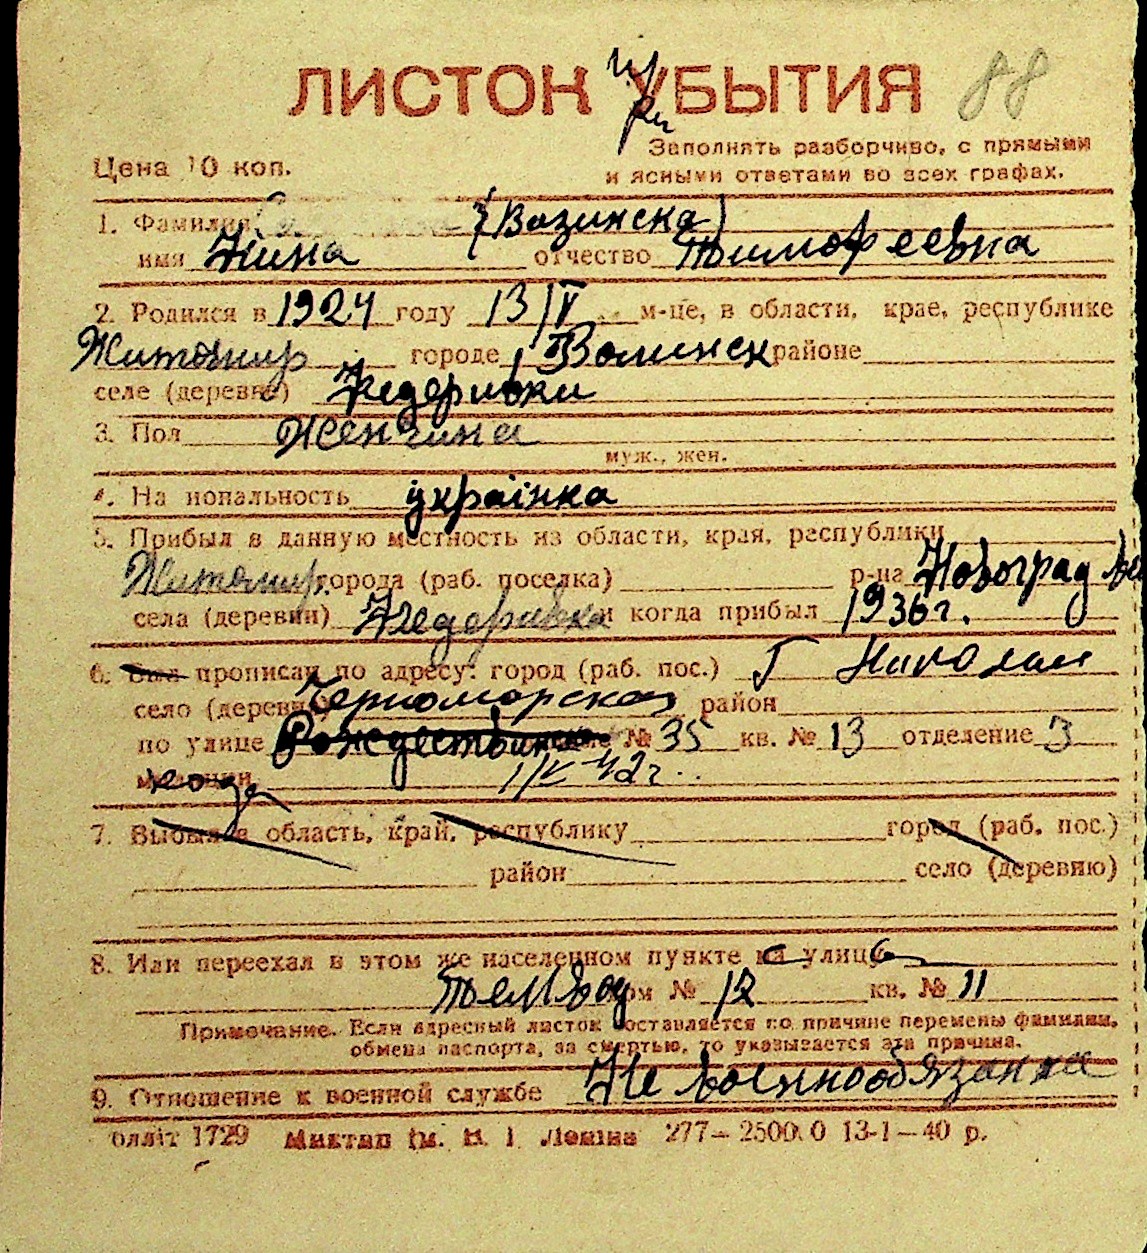 ЛИСТОК УБЫТИЯ 88
при
Цена 10 коп.
Заполнять разборчиво, с прямыми
и ясными ответами во всех графах.
1. Фамилия (Вазинска)
имя Нина отчество Тимофеевна
2. Родился в 1924 году 13/V м-це, в области, крае, республике
Житомир городе Волинск районе
селе (деревне) Федеривки
3. Пол Женчина
муж., жен.
4. На иональность українка
5. Прибыл в данную местность из области, края, республики
Житомир. города (раб. поселка) р-на Новоград
села (деревни) Федеривка и когда прибыл 1936 г.
6. Был прописан по адресу: город (раб. пос.) Г Николаи
село (деревни) Черноморская район
по улице Рождественская № 35 кв. № 13 отделение 3
милиции когда 1/V 42 г.
7. Выбыл в область, край, республику город (раб. пос.)
район село (деревню)
8. Или переехал в этом же населенном пункте на улицу
Темвод дом № 12 кв. № 11
Примечание. Если адресный листок составляется по причине перемены фамилии,
обмена паспорта, за смертью, то указывается эта причина.
9. Отношение к военной службе Не военнообязанна
Оллiт 1729 277— 2500.0 13-1—40 р.